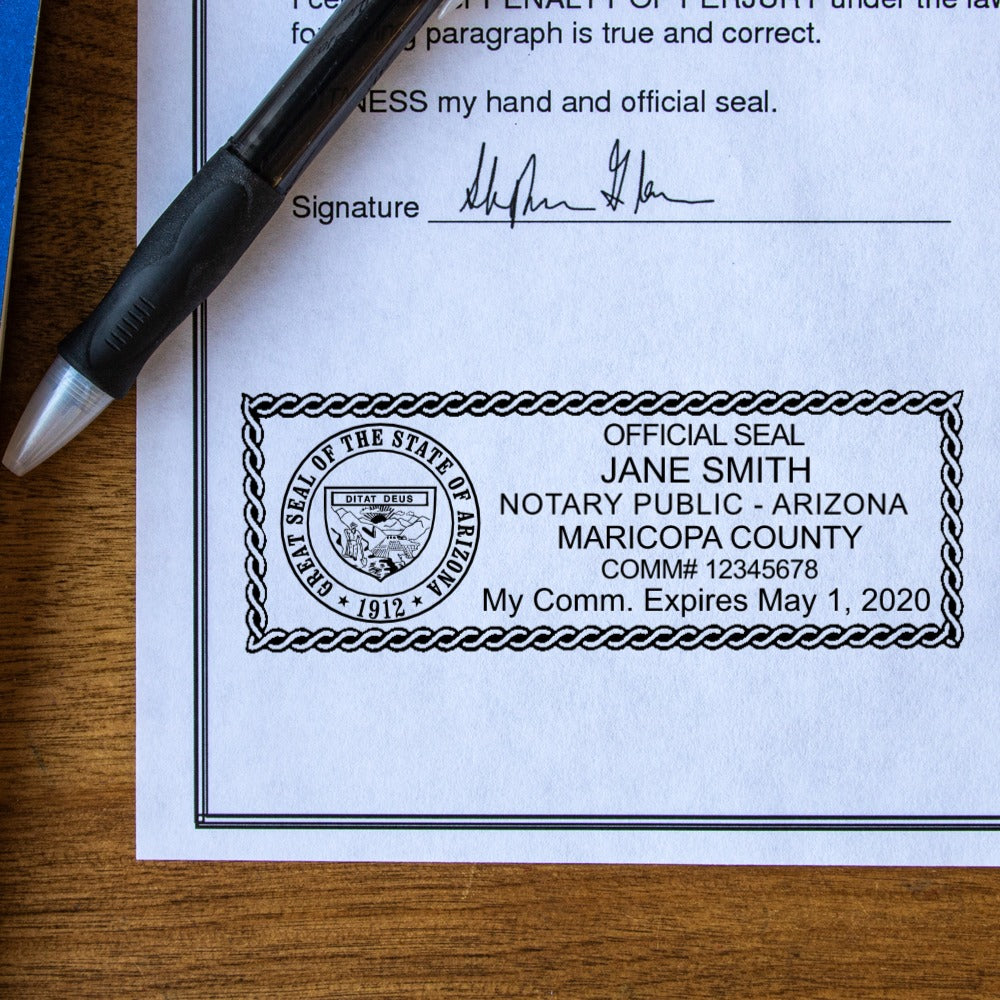 PENALTY OF PERJURY under the
paragraph is true and correct.
my hand and official seal.
Signature
GREAT SEAL OF THE STATE OF ARIZONA
DITAT DEUS
★ 1912 ★
OFFICIAL SEAL
JANE SMITH
NOTARY PUBLIC - ARIZONA
MARICOPA COUNTY
COMM# 12345678
My Comm. Expires May 1, 2020